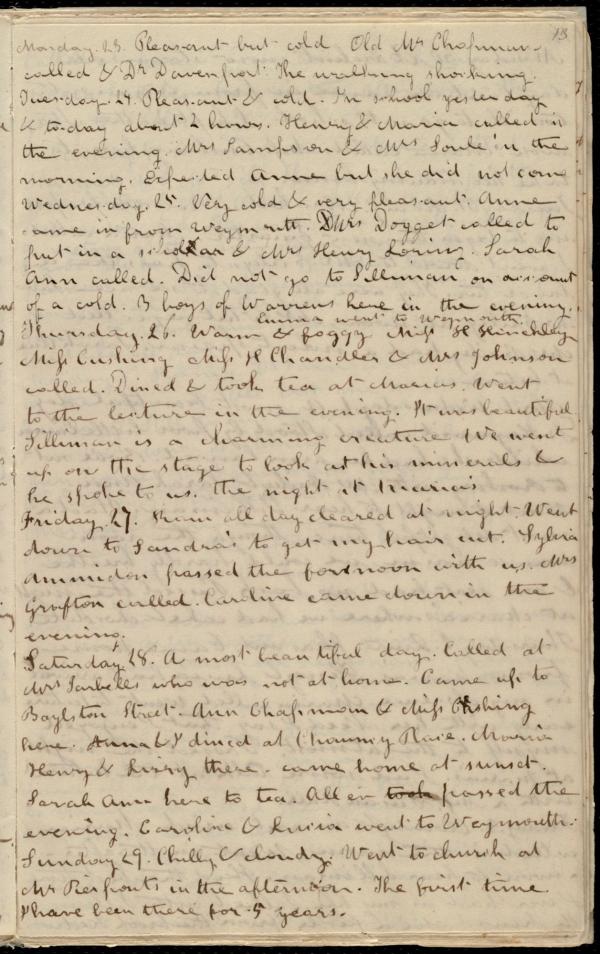 13
Monday. 23. Pleasant but cold. Old Mr Chapman
called & Dr Davenport. The walking shocking.
Tuesday. 24. Pleasant & cold. In school yesterday
& to-day about 2 hours. Henry & Maria called in
the evening. Mrs Sampson & Mrs Soule in the
morning. Expected Anne but she did not come
Wednesday. 25. Very cold & very pleasant. Anne
came in from Weymouth. Mrs Dogget called to
put in a scholar & Mrs Henry Loring. Sarah
Ann called. Did not go to Silliman on account
of a cold. 3 boys of Warrens here in the evening.
Emma went to Weymouth
Thursday. 26. Warm & foggy Miss H Hinckley
Miss Cushing Miss H Chandler & Mrs Johnson
called. Dined & took tea at Marias. Went
to the lecture in the evening. It was beautiful
Silliman is a charming creature We went
up on the stage to look at his minerals &
he spoke to us. The night at Maria's
Friday. 27. Rain all day cleared at night Went
down to Sandra's to get my hair cut. Sylvia
Ammidon passed the forenoon with us. Mrs
Grafton called. Caroline came down in the
evening.
Saturday 28. A most beautiful day. Called at
Mrs Tarbells who was not at home. Came up to
Boylston Street. Ann Chapman & Miss Cushing
here. Anna & I dined at Chauncy Place. Maria
Henry & Lizzy there. came home at sunset.
Sarah Ann here to tea. Allen took passed the
evening. Caroline & Lucia went to Weymouth.
Sunday 29. Chilly & cloudy. Went to church at
Mr Pierponts in the afternoon. The first time
I have been there for 5 years.